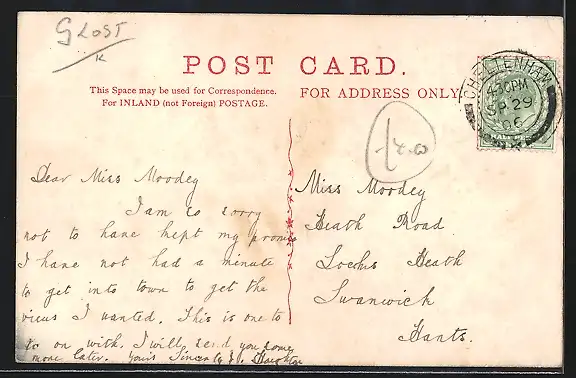 GLOST
K
POST CARD.
This Space may be used for Correspondence.
For INLAND (not Foreign) POSTAGE.
FOR ADDRESS ONLY
CHELTENHAM
4.30PM
SP 29
06
Dear Miss Moodey
I am so sorry
not to have kept my promis
I have not had a minute
to get into town to get the
views I wanted. This is one to
go on with. I will send you some
more later. Yours Sincerely
Miss Moodey
Heath Road
Locks Heath
Swanwick
Hants.